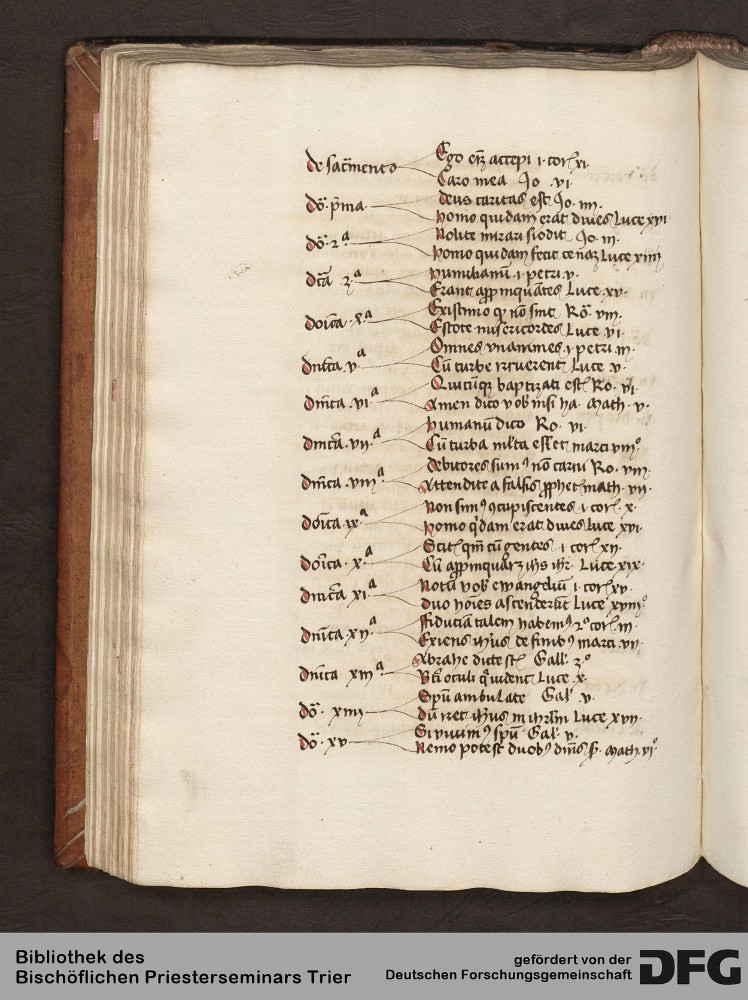 de sacramento Ego enim accepi i. cor. xi
Caro mea Jo. vi.
do. prima deus caritas est Jo. iiii.
homo quidam erat dives Luce xvi
do. 2ª Nolite mirari si odit Jo. iii.
homo quidam fecit cenam Luce xiiii
dca 3ª humiliamini i petri v.
Erant appropinquantes Luce xv.
doica 4ª Existimo quod non sunt Ro. viii.
Estote misericordes Luce vi
dnica v ª Omnes unanimes i petri iii.
Cum turbe irruerent Luce v.
dnica vi ª Quicunque baptizati estis Ro. vi
Amen dico vobis nisi ha. Math. v.
dnica vii ª humanum dico Ro. vi
Cum turba multa esset marci viiiº
dnica viii ª debitores sumus non carni Ro. viii
Attendite a falsis prophetis math. vii.
doica ix ª Non simus concupiscentes i cor. x.
homo quidam erat dives Luce xvi.
doica x ª Scitis quoniam cum gentes i cor. xii
Cum appropinquaret ihesus iherusalem Luce xix.
dnica xi ª Notum vobis ewangelium i cor. xv.
duo homines ascenderunt Luce xviiiº
dnica xii ª Fiduciam talem habemus 2º cor. iii.
Exiens ihesus de finibus marci vii
dnica xiii ª Abrahe dicte sunt Gal. 3º
Beati oculi qui vident Luce x.
do. xiiii Spiritu ambulate Gal. v.
dum iret ihesus in iherusalem Luce xvii.
do. xv Si vivimus spiritu Gal. v.
Nemo potest duobus dominis s. Math. viº
Bibliothek des
Bischöflichen Priesterseminars Trier
gefördert von der
Deutschen Forschungsgemeinschaft DFG